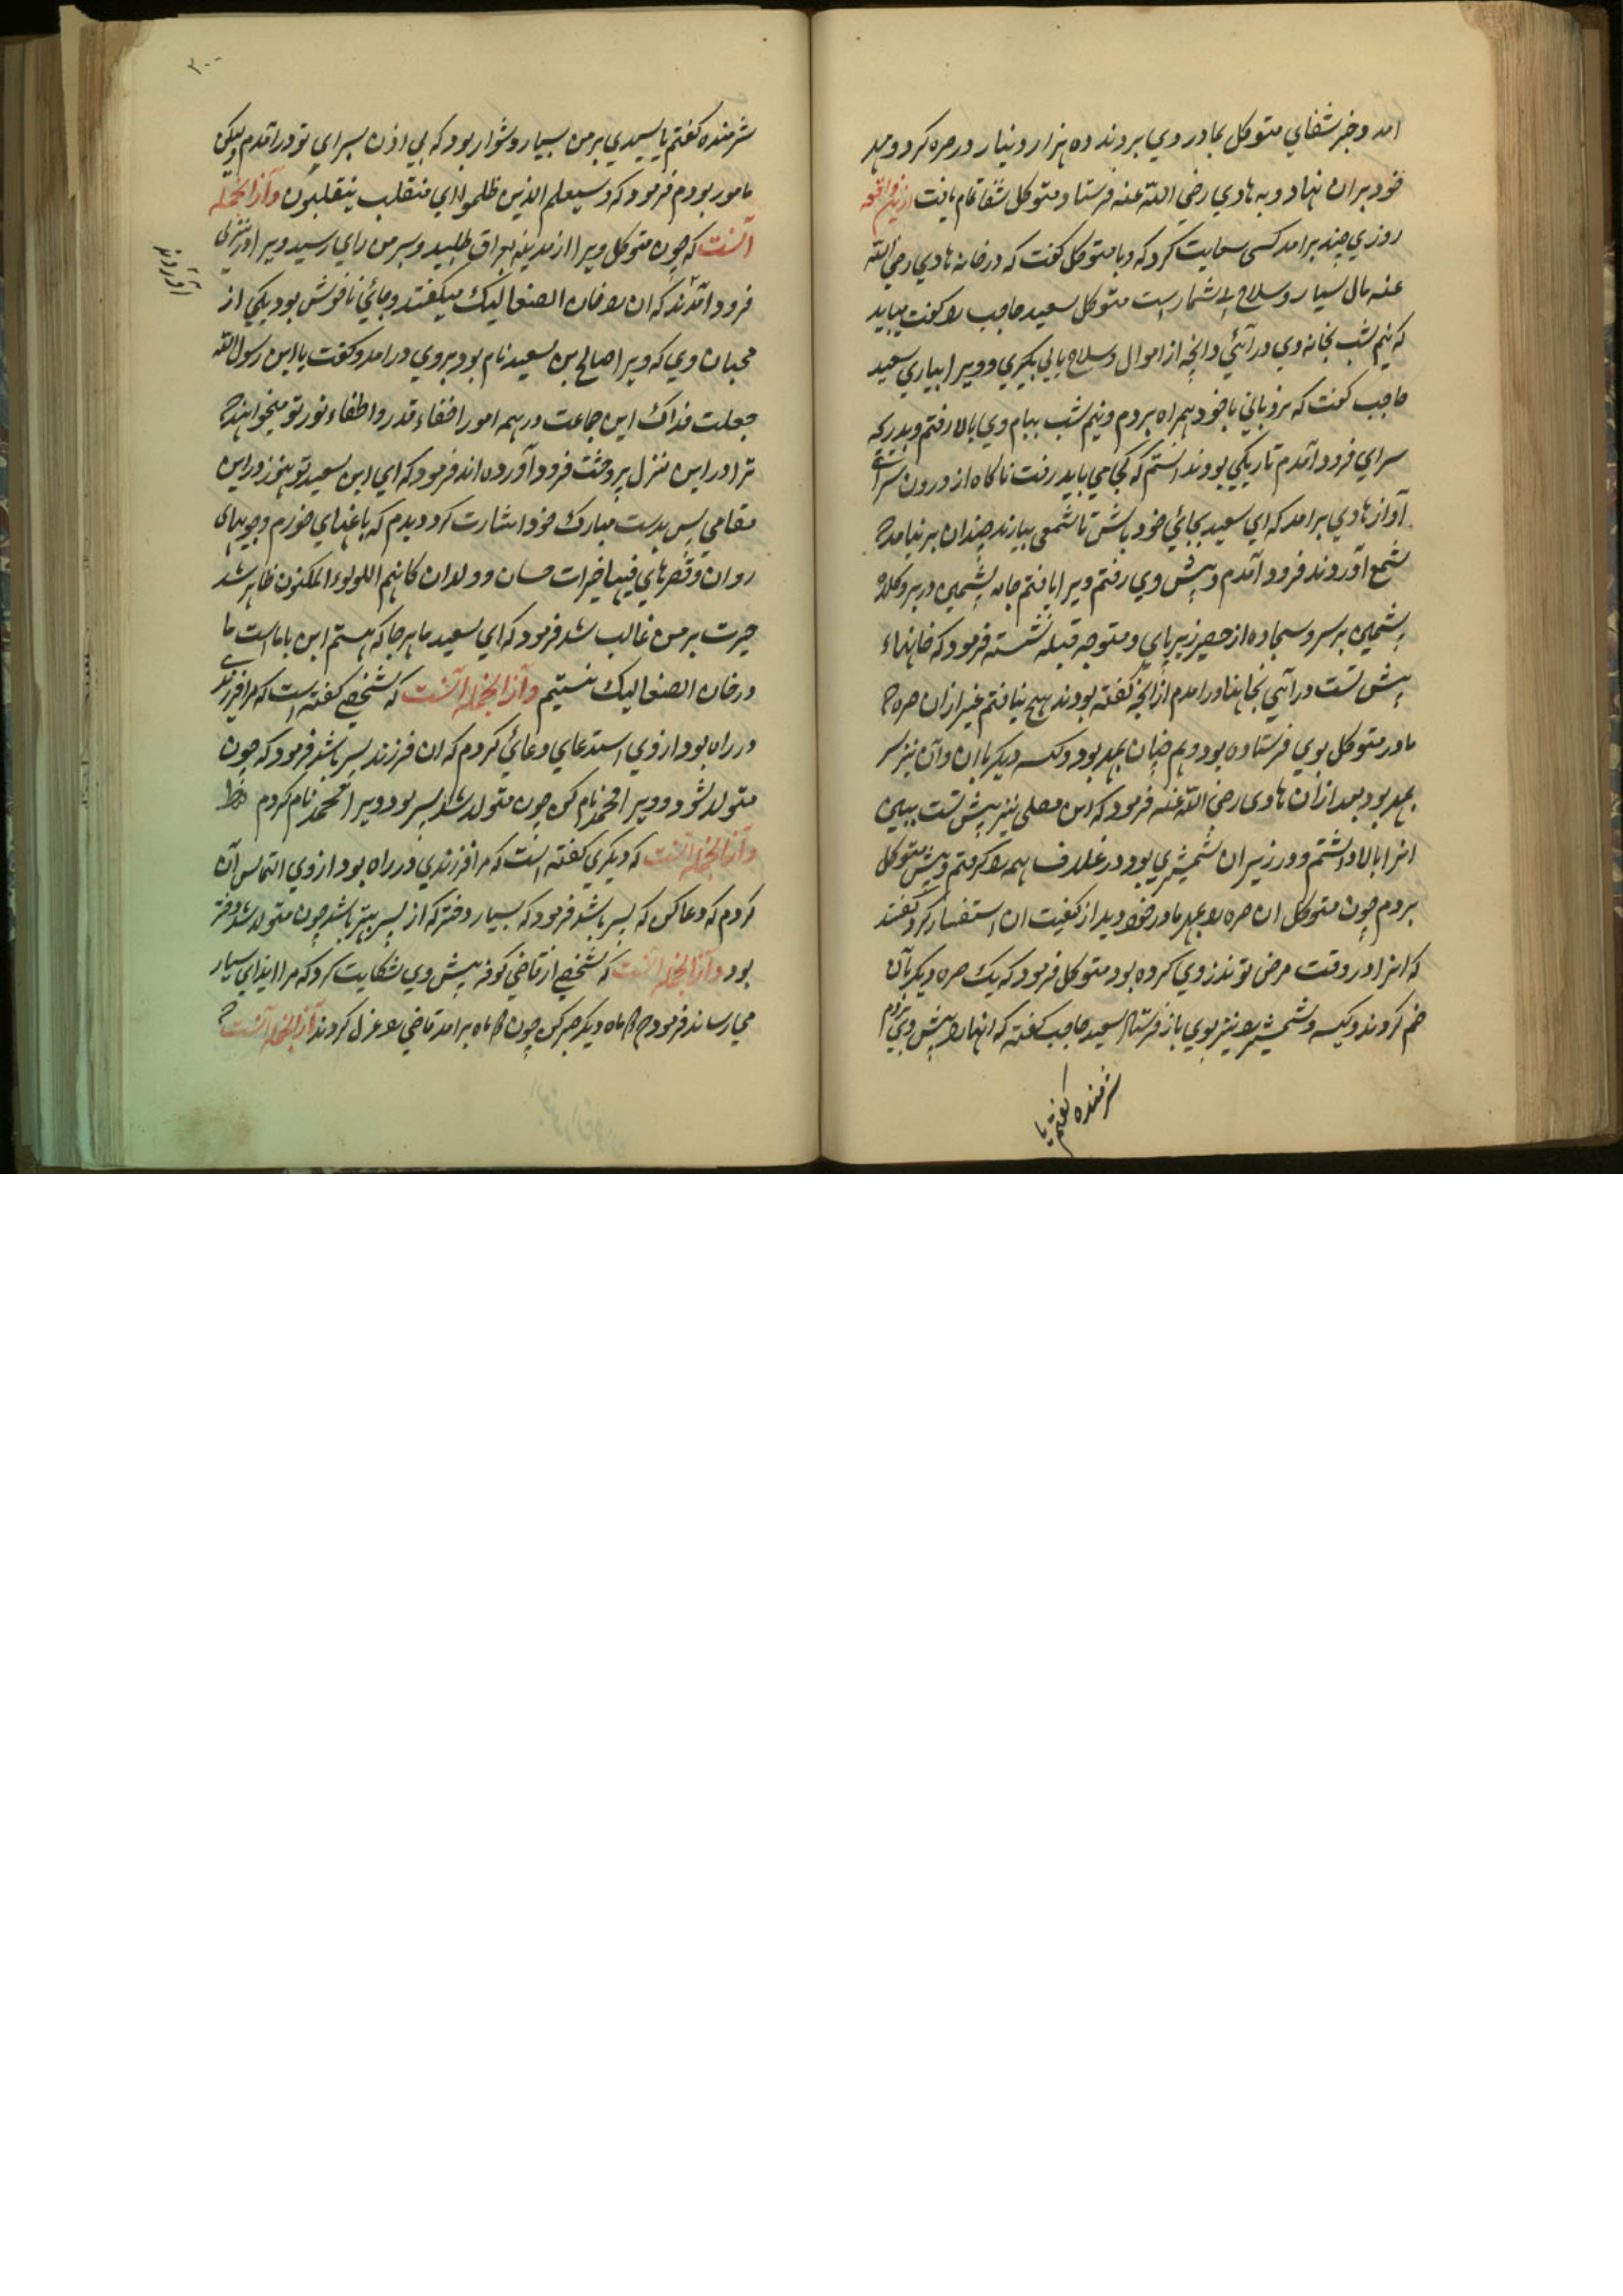 امد و خبر شفای متوکل بمادر وي بردند ده هزار دینار در صره کرد و مهر
خود بران نهاد و به هادي رضي الله عنه فرستاد و متوکل شفا تمام یافت ازین واقعه
روزي چند برامد کسی سعایت کرد که و با متوکل کفت که در خانه هادي رضي الله
عنه مال بسیار و سلاح بی شمار است متوکل سعید حاجب را کفت میباید
که نیم شب بخانه وي در آئي و انچه از اموال و سلاح یابي بکیري و ویرا بیاري سعید
حاجب کفت که نردباني با خود همراه بردم و نیم شب ببام وي بالا رفتم و بدرکه
سراي فرود آمدم تاریکي بود ندانستم که کجا مي باید رفت ناکاه از درون سراي
آواز هادي برامد که اي سعید بجائي خود باش تا شمعی بیارند چندان بر نیامد که
شمع آوردند فرود آمدم و پیش وي رفتم ویرا یافتم جامه پشمین در بر و کلاه
پشمین بر سر و سجاده از حصیر زیر پاي و متوجه قبله نشسته فرمود که خانهاء
پیش تست در آئي بخانها در امدم از انچه کفته بودند هیچ نیافتم غیر از ان صره که
مادر متوکل بوي فرستاده بود و هم چنان بمهر بود و کیسه دیکر با ان و ان نیز سر
بمهر بود بعد از ان هادی رضي الله عنه فرمود که این مصلی نیز پیش تست ببین
انرا بالا داشتم و در زیر ان شمشیري بود در غلاف همه را کرفتم و پیش متوکل
بردم چون متوکل ان صره را بمهر مادر خود دید از کیفیت ان استفسار کرد کفتند
که انرا در وقت مرض تو نذر وي کرده بود متوکل فرمود که یک صره دیکر بآن
ضم کردند و کیسه و شمشیر را نیز بوي باز فرستاد سعید حاجب کفته که انها را پیش وي بردم
شرمنده کفتم یا
٣٠٠
شرمنده کفتم یا سیدي بر من بسیار دشوار بود که بي اذن بسراي تو در آمدم ولیکن
مامور بودم فرمود که و سیعلم الذین ظلموا اي منقلب ینقلبون و از انجمله
آنست که چون متوکل ویرا از مدینه بعراق طلبید و بسر من راي رسید ویرا در منزلي
فرود آمدند که ان را خان الصعالیک میکفتند و جائي ناخوش بود یکي از
آوردند
محبان وي که ویرا صالح بن سعید نام بود بر وي در امد و کفت یا ابن رسول الله
جعلت فداک این جماعت در همه امور اخفاء قدر و اطفاء نور تو میخواهند که
ترا در این منزل پر وحشت فرود آورده اند فرمود که اي ابن سعید تو هنوز در این
مقامی پس بدست مبارک خود اشارت کرد دیدم که باغهاي خورم و جویهای
روان و قصرهاي فیها خیرات حسان و ولدان کانهم اللولوء المکنون ظاهر شد
حیرت بر من غالب شد فرمود که اي سعید ما هر جا که هستم این با ما است ما
در خان الصعالیک نیستیم و از انجمله آنست که شخصي کفته است که مرا فرزندی
در راه بود از وي استدعاي دعائي کردم که ان فرزند پسر باشد فرمود که چون
متولد شود ویرا محمد نام کن چون متولد شد پسر بود ویرا محمد نام کردم
و از انجمله آنست که دیکري کفته است که مرا فرزندي در راه بود از وي التماس آن
کردم که دعا کن که پسر باشد فرمود که بسیار دختر که از پسر بهتر باشد چون متولد شد دختر
بود و از انجمله آنست که شخصي از قاضي کوفه پیش وي شکایت کرد که مرا ایذاي بسیار
مي رساند فرمود که دو ماه دیکر صبر کن چون دو ماه بر امد قاضي را عزل کردند از انجمله آنست که